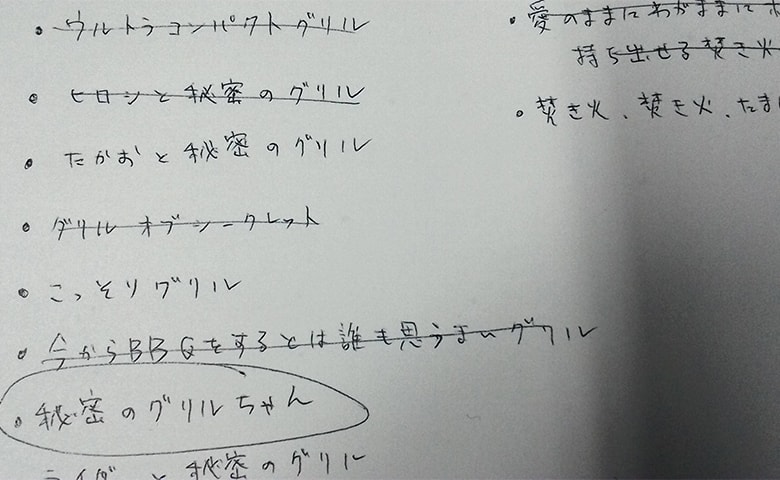 ・ウルトラコンパクトグリル
・ヒロシと秘密のグリル
・たかおと秘密のグリル
・グリルオブシークレット
・こっそりグリル
・今からBBQをするとは誰も思うまいグリル
・秘密のグリルちゃん
ライダーと秘密のグリル
・愛のままにわがままに
持ち出せる焚き火
・焚き火、焚き火、たま